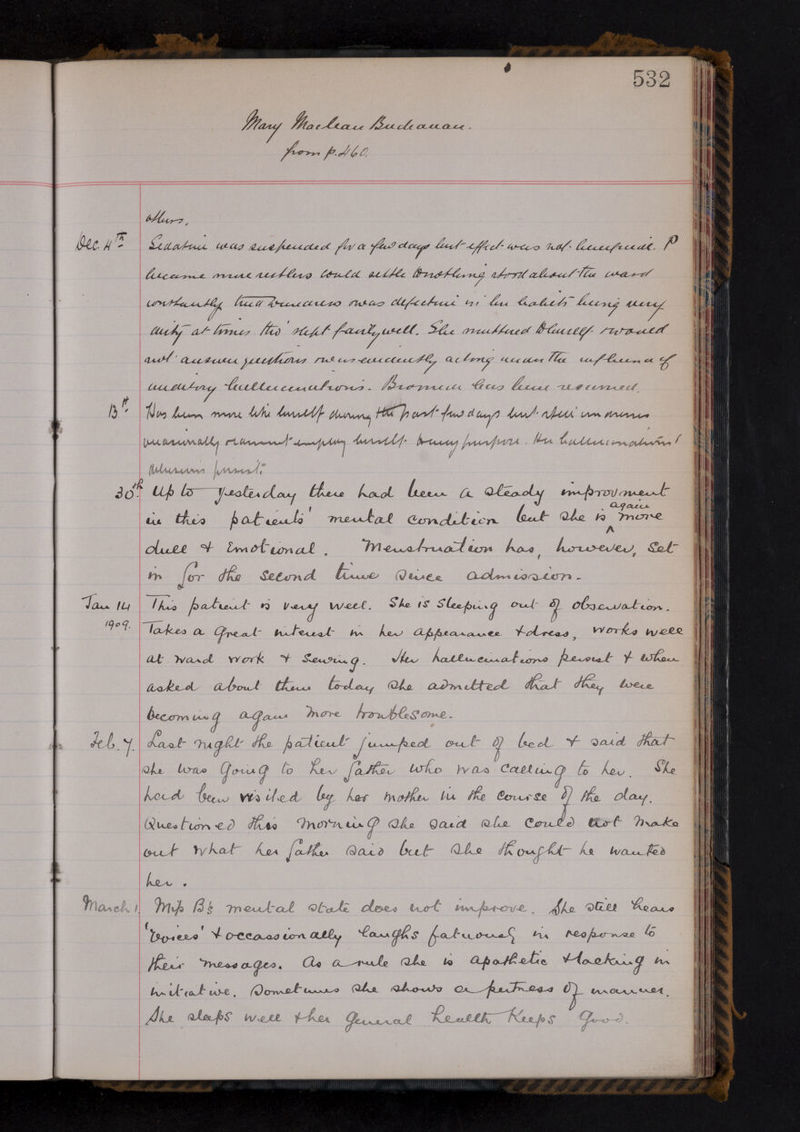 532
Mary Maclean Buchanan.
from p. 460.
others.
Dec. 4th Sedative was suspended for a few days but effect was not beneficial. P
became more restless could settle to nothing stood about the ward
constantly & was defective in her habits being very
dirty at times tho' slept fairly well. She muttered to herself & would
not answer questions & was evidently acting under the influence of
auditory hallucinations. Bromide has been resumed.
13th Has been more like herself during the past few days but still
occasionally & cannot employ herself to any purpose. Her hallucinations &
delusions persist.
30th Up to yesterday there had been a steady improvement
in this patients' mental condition but she is again more
dull & Emotional. Menstruation has, however, Set
in for the Second time since admission.
Jan 14 This patient is very well. She is Sleeping out of observation.
1909. Takes a Great interest in her appearance & dress, works well
at Ward work & Sewing. Her hallucinations persist & when
asked about them today she admitted that they were
becoming again more troublesome.
Feb. 7. Last night the patient jumped out of bed & said that
she was Going to her father who was calling to her. She
had been visited by her mother in the course of the day.
Questioned this morning she said she could not make
out what her father said but she thought he wanted
her.
March 1. Miss B's mental state does not improve. She still hears
'Voices' & occassionally laughs fatuously in response to
their messages. As a rule she is apathetic & lacking in
initiative. Sometimes she shows a pertness of manner.
She sleeps well & her General health Keeps Good.